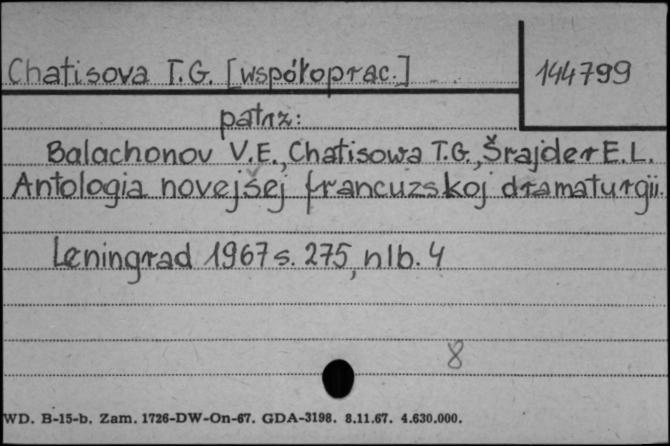 Chatisova T.G. [współoprac.]
144799
patrz:
Balachonov V.E., Chatisowa T.G., Šrajder E.L.
Antologia novejšej francuzskoj dramaturgii.
Leningrad 1967 s. 275, nlb. 4
8
WD. B-15-b. Zam. 1726-DW-On-67. GDA-3198. 8.11.67. 4.630.000.